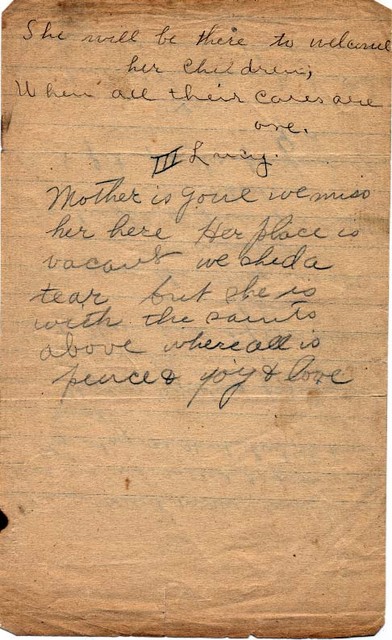 She will be there to welcome
her children,
When all their cares are
ore.
III Lucy.
Mother is gone we miss
her here Her place is
vacant we shed a
tear but she is
with the saints
above where all is
peace & joy & love